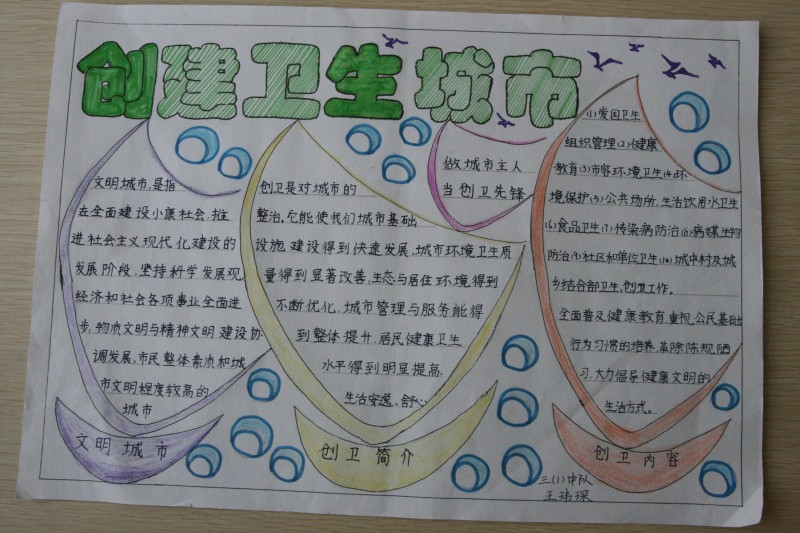 创建卫生城市
文明城市，是指
在全面建设小康社会，推
进社会主义现代化建设的
发展阶段，坚持科学发展观，
经济和社会各项事业全面进
步，物质文明与精神文明建设协
调发展，市民整体素质和城
市文明程度较高的
城市
文明城市
创卫是对城市的
整治。它能使我们城市基础
设施建设得到快速发展，城市环境卫生质
量得到显著改善，生态与居住环境得到
不断优化，城市管理与服务能得
到整体提升，居民健康卫生
水平得到明显提高，
生活安逸，舒心
创卫简介
做城市主人
当创卫先锋
(1)爱国卫生
组织管理(2)健康
教育(3)市容环境卫生(4)环
境保护(5)公共场所、生活饮用水卫生
(6)食品卫生(7)传染病防治(8)病媒生物
防治(9)社区和单位卫生(10)城中村及城
乡结合部卫生，创卫工作。
全面普及健康教育，重视公民基础
行为习惯的培养，革除陈规陋
习，大力倡导健康文明的
生活方式。
创卫内容
三(1)中队
王玮琛